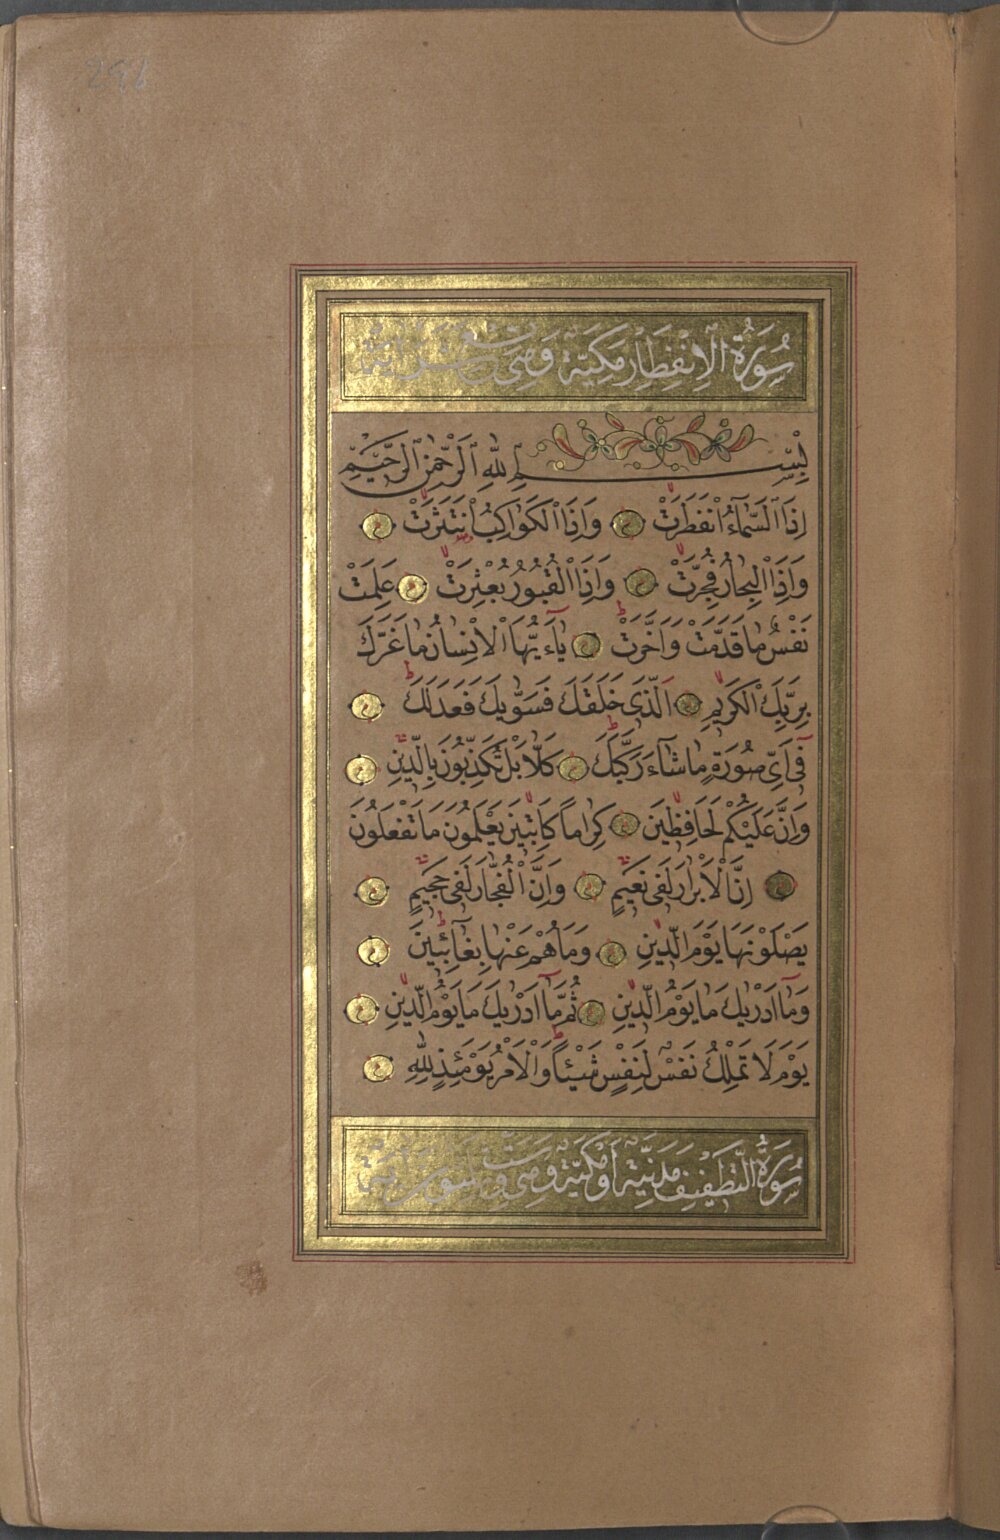 296
سُورَةُ الْاِنْفِطَارِ مَكِّيَّة وَهِىَ تِسْعَ عَشْرَةَ اٰيَة
بِسْــمِ اللّٰهِ الرَّحْمٰنِ الرَّحٖيمِ
اِذَا السَّمَٓاءُ انْفَطَرَتْ وَاِذَا الْكَوَاكِبُ انْتَثَرَتْ
وَاِذَا الْبِحَارُ فُجِّرَتْ وَاِذَا الْقُبُورُ بُعْثِرَتْ عَلِمَتْ
نَفْسٌ مَا قَدَّمَتْ وَاَخَّرَتْ يَٓا اَيُّهَا الْاِنْسَانُ مَا غَرَّكَ
بِرَبِّكَ الْكَرٖيمِ اَلَّذٖى خَلَقَكَ فَسَوّٰيكَ فَعَدَلَكَ
فٖٓى اَىِّ صُورَةٍ مَا شَٓاءَ رَكَّبَكَ كَلَّا بَلْ تُكَذِّبُونَ بِالدّٖينِ
وَاِنَّ عَلَيْكُمْ لَحَافِظٖينَ كِرَاماً كَاتِبٖينَ يَعْلَمُونَ مَا تَفْعَلُونَ
اِنَّ الْاَبْرَارَ لَفٖى نَعٖيمٍ وَاِنَّ الْفُجَّارَ لَفٖى جَحٖيمٍ
يَصْلَوْنَهَا يَوْمَ الدّٖينِ وَمَا هُمْ عَنْهَا بِغَٓائِبٖينَ
وَمَٓا اَدْرٰيكَ مَا يَوْمُ الدّٖينِ ثُمَّ مَٓا اَدْرٰيكَ مَا يَوْمُ الدّٖينِ
يَوْمَ لَا تَمْلِكُ نَفْسٌ لِنَفْسٍ شَيْئاً وَالْاَمْرُ يَوْمَئِذٍ لِلّٰهِ
سُورَةُ التَّطْفٖيفِ مَدَنِيَّة اَوْ مَكِّيَّة وَهِىَ سِتّ وَ